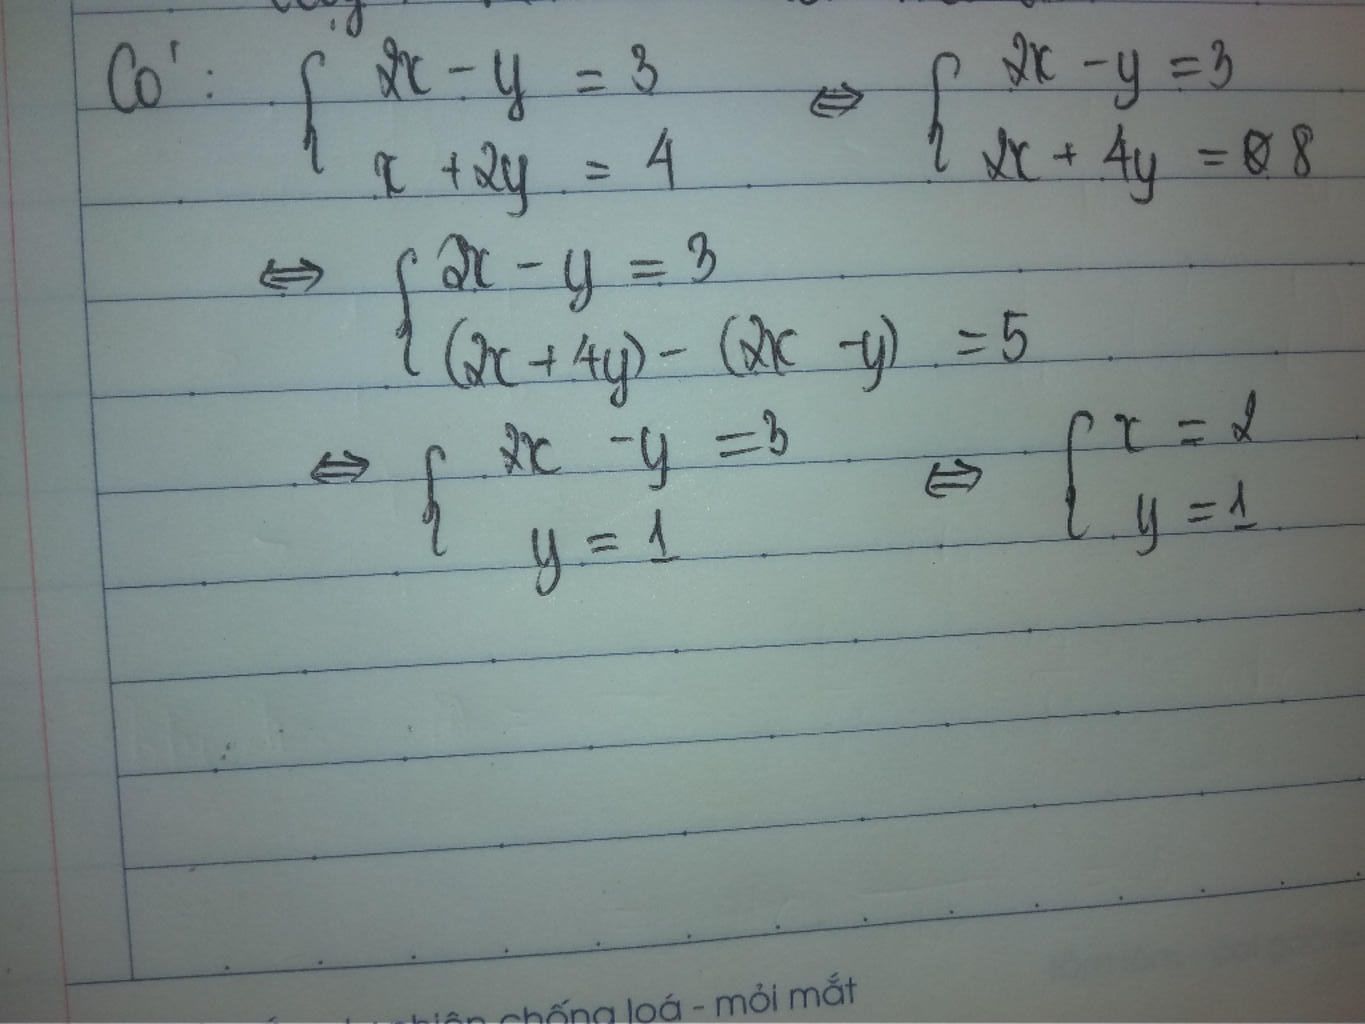 Có : { 2x - y = 3 ⇔ { 2x - y = 3
x + 2y = 4 2x + 4y = 8
⇔ { 2x - y = 3
(2x + 4y) - (2x - y) = 5
⇔ { 2x - y = 3 ⇔ { x = 2
y = 1 y = 1
chống loá - mỏi mắt